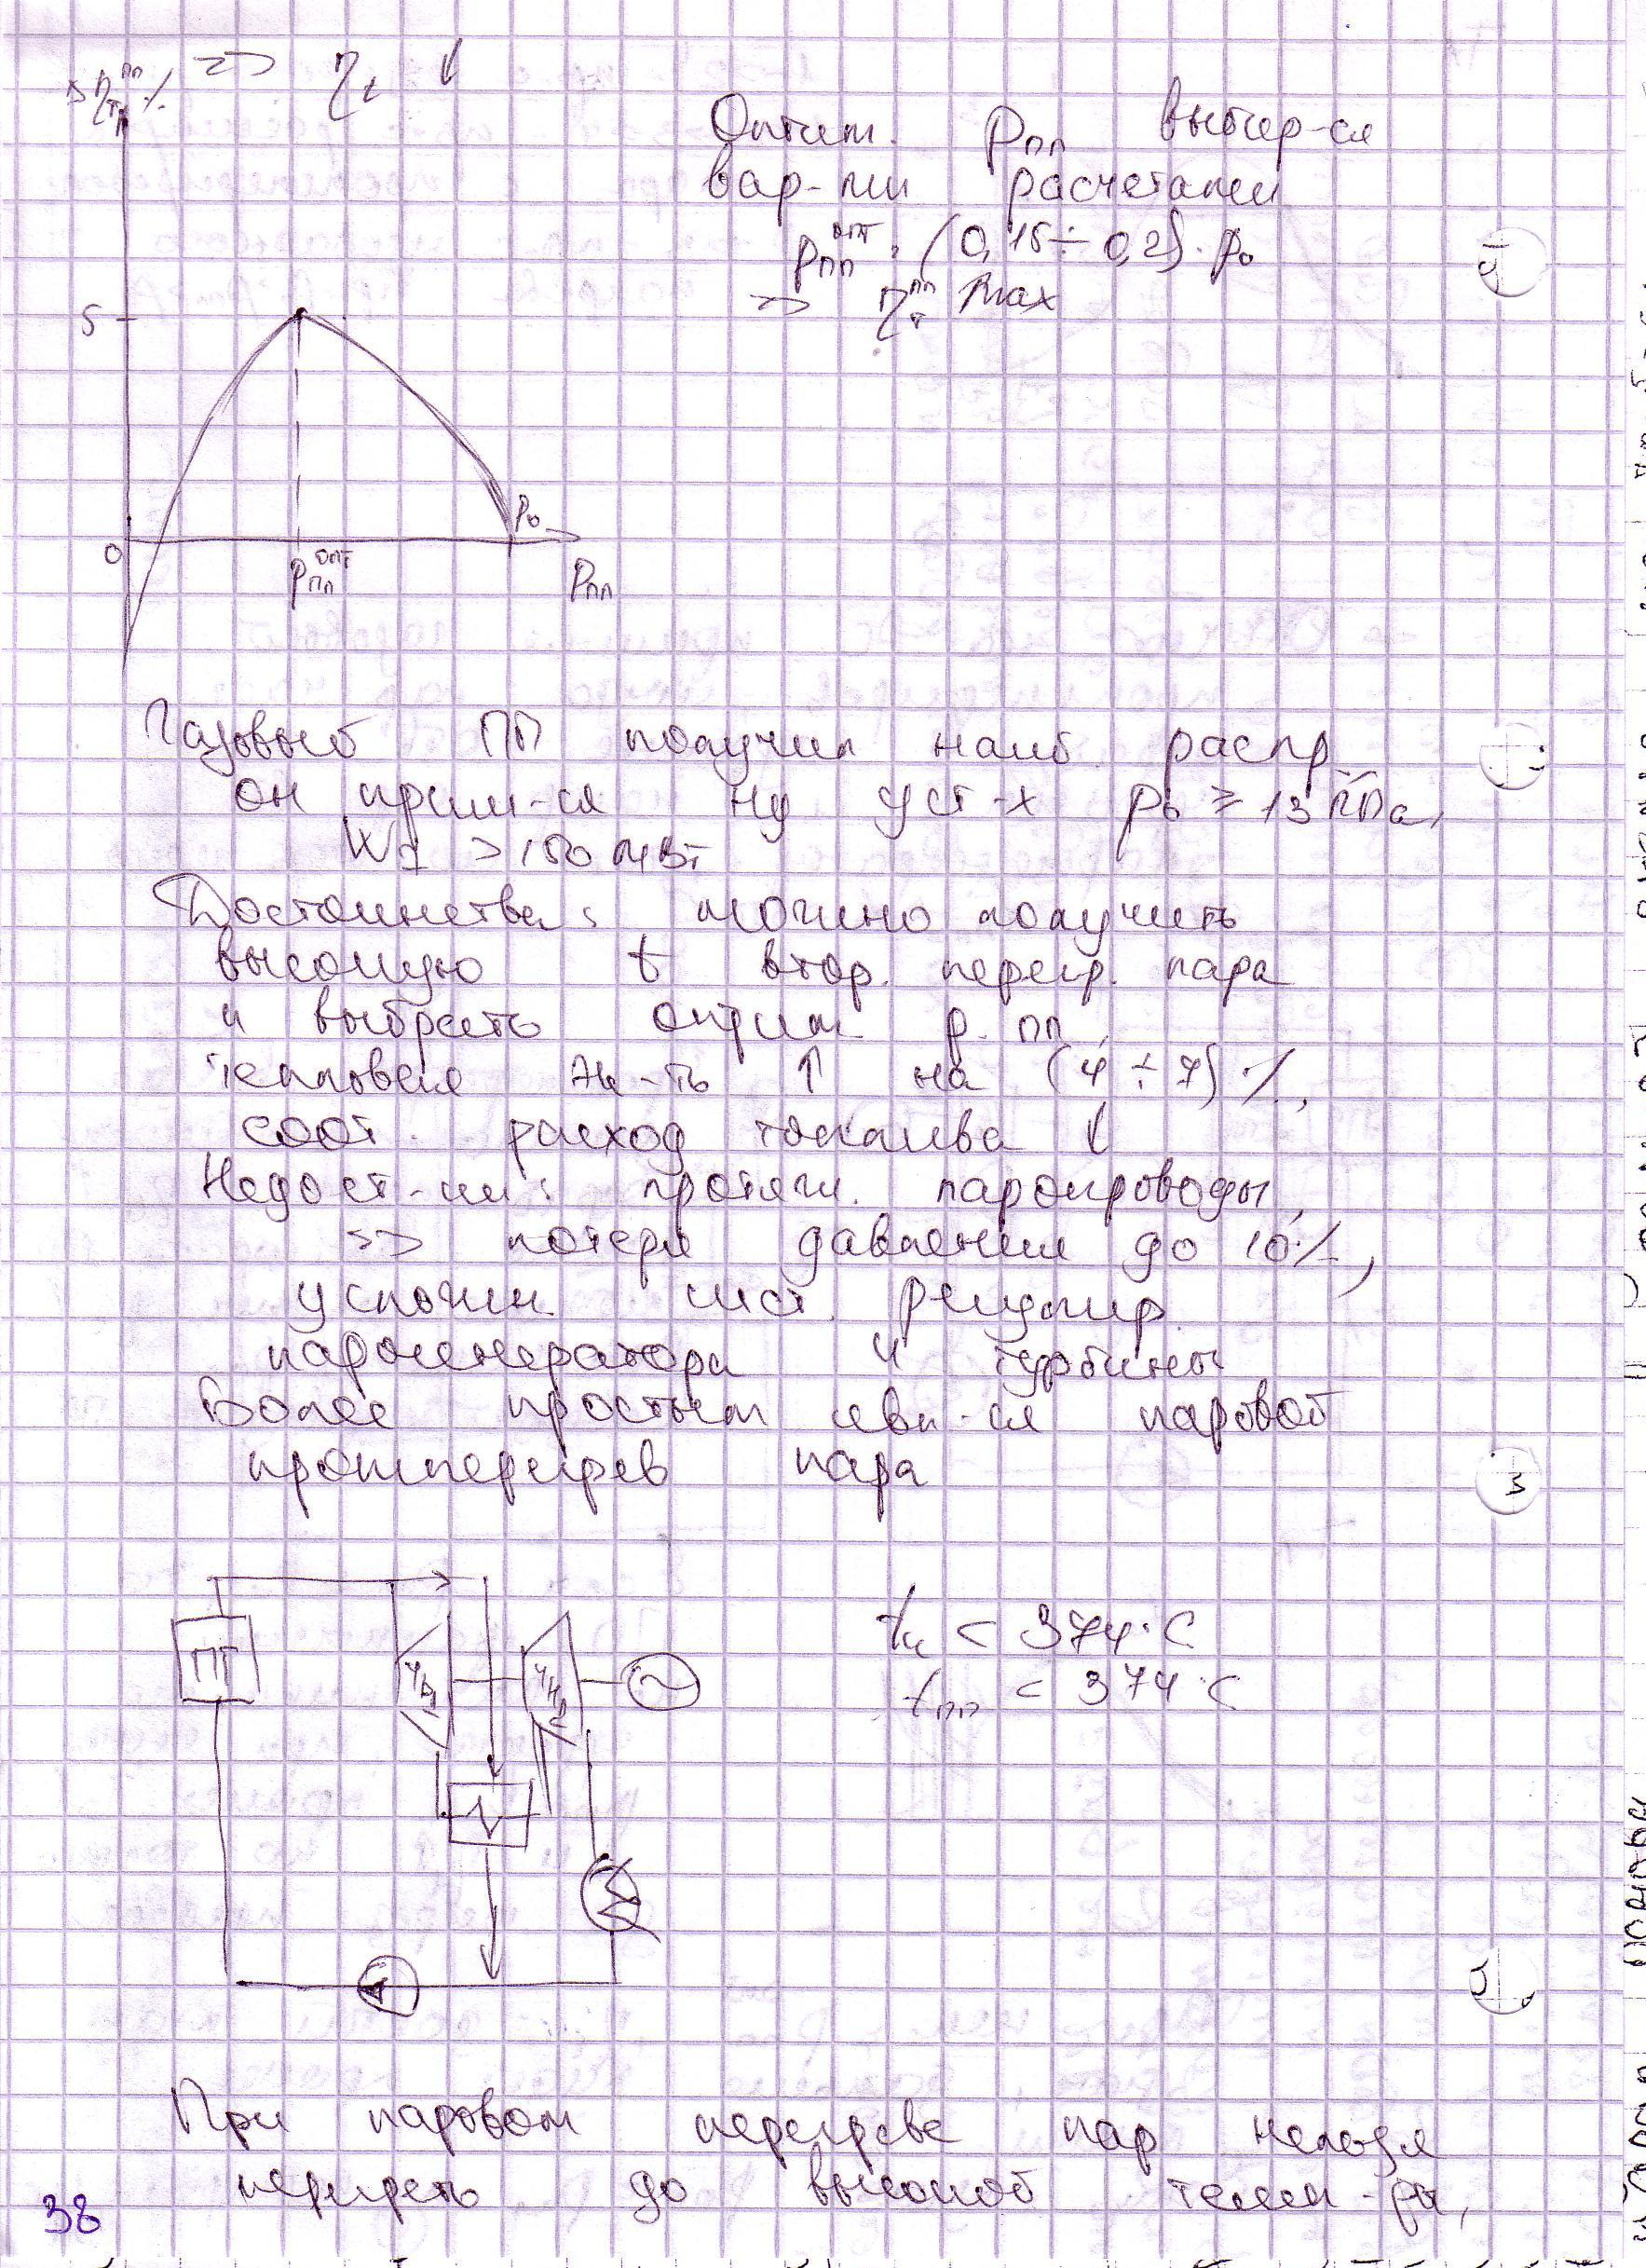 Δη_т^пп % => η_t ↓
Оптим. p_пп выбир-ся
вар-ми расчетами
p_пп^опт = (0,15÷0,2)·p₀
=> η_т^пп max
5
p₀
0
p_пп^опт
p_пп
Газовый ПП получил наиб. распр.
он прим-ся на уст-х p₀ ≥ 13 МПа,
>150 МВт
Достоинства: можно получить
высокую t втор. перегр. пара
и выбрать оптим p. пп,
тепловая эк-ть ↑ на (4 ÷ 7) %,
соот. расход топлива ↓
Недост-ки: протяж. паропроводы,
=> потеря давления до 10%,
усложн. сист. регулир.
парогенератора и турбины
Более простым явл-ся паровой
промперегрев пара
ПГ
ЦВД
ЦНД
t_н < 374°C
t_пп < 374°C
При паровом перегреве пар нельзя
перегреть до высокой темп-ры,
38